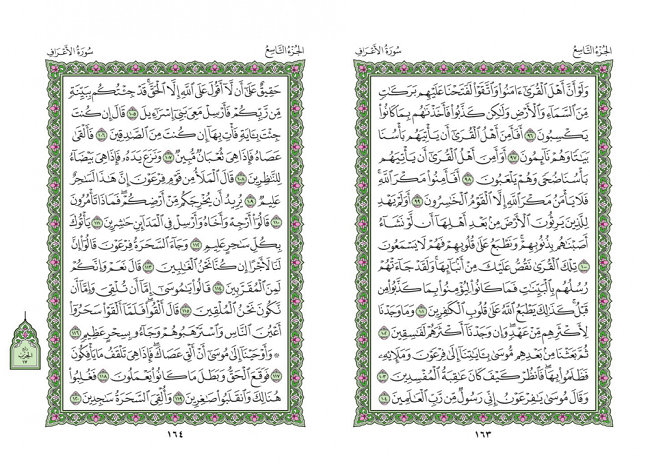 الجُزْءُ التَّاسِعُ
سُورَةُ الأَعْرَافِ
وَلَوْ أَنَّ أَهْلَ ٱلْقُرَىٰٓ ءَامَنُواْ وَٱتَّقَوْاْ لَفَتَحْنَا عَلَيْهِم بَرَكَٰتٍ
مِّنَ ٱلسَّمَآءِ وَٱلْأَرْضِ وَلَٰكِن كَذَّبُواْ فَأَخَذْنَٰهُم بِمَا كَانُواْ
يَكْسِبُونَ ٩٦ أَفَأَمِنَ أَهْلُ ٱلْقُرَىٰٓ أَن يَأْتِيَهُم بَأْسُنَا
بَيَٰتًا وَهُمْ نَآئِمُونَ ٩٧ أَوَأَمِنَ أَهْلُ ٱلْقُرَىٰٓ أَن يَأْتِيَهُم
بَأْسُنَا ضُحًى وَهُمْ يَلْعَبُونَ ٩٨ أَفَأَمِنُواْ مَكْرَ ٱللَّهِ
فَلَا يَأْمَنُ مَكْرَ ٱللَّهِ إِلَّا ٱلْقَوْمُ ٱلْخَٰسِرُونَ ٩٩ أَوَلَمْ يَهْدِ
لِلَّذِينَ يَرِثُونَ ٱلْأَرْضَ مِنۢ بَعْدِ أَهْلِهَآ أَن لَّوْ نَشَآءُ
أَصَبْنَٰهُم بِذُنُوبِهِمْ وَنَطْبَعُ عَلَىٰ قُلُوبِهِمْ فَهُمْ لَا يَسْمَعُونَ
١٠٠ تِلْكَ ٱلْقُرَىٰ نَقُصُّ عَلَيْكَ مِنْ أَنۢبَآئِهَا وَلَقَدْ جَآءَتْهُمْ
رُسُلُهُم بِٱلْبَيِّنَٰتِ فَمَا كَانُواْ لِيُؤْمِنُواْ بِمَا كَذَّبُواْ مِن
قَبْلُ كَذَٰلِكَ يَطْبَعُ ٱللَّهُ عَلَىٰ قُلُوبِ ٱلْكَٰفِرِينَ ١٠١ وَمَا وَجَدْنَا
لِأَكْثَرِهِم مِّنْ عَهْدٍ وَإِن وَجَدْنَآ أَكْثَرَهُمْ لَفَٰسِقِينَ ١٠٢
ثُمَّ بَعَثْنَا مِنۢ بَعْدِهِم مُّوسَىٰ بِـَٔايَٰتِنَآ إِلَىٰ فِرْعَوْنَ وَمَلَإِيْهِۦ
فَظَلَمُواْ بِهَا فَٱنظُرْ كَيْفَ كَانَ عَٰقِبَةُ ٱلْمُفْسِدِينَ ١٠٣
وَقَالَ مُوسَىٰ يَٰفِرْعَوْنُ إِنِّي رَسُولٌ مِّن رَّبِّ ٱلْعَٰلَمِينَ ١٠٤
١٦٣
الجُزْءُ التَّاسِعُ
سُورَةُ الأَعْرَافِ
حَقِيقٌ عَلَىٰٓ أَن لَّآ أَقُولَ عَلَى ٱللَّهِ إِلَّا ٱلْحَقَّ قَدْ جِئْتُكُم بِبَيِّنَةٍ
مِّن رَّبِّكُمْ فَأَرْسِلْ مَعِيَ بَنِيٓ إِسْرَٰٓءِيلَ ١٠٥ قَالَ إِن كُنتَ
جِئْتَ بِـَٔايَةٍ فَأْتِ بِهَآ إِن كُنتَ مِنَ ٱلصَّٰدِقِينَ ١٠٦ فَأَلْقَىٰ
عَصَاهُ فَإِذَا هِيَ ثُعْبَانٌ مُّبِينٌ ١٠٧ وَنَزَعَ يَدَهُۥ فَإِذَا هِيَ بَيْضَآءُ
لِلنَّٰظِرِينَ ١٠٨ قَالَ ٱلْمَلَأُ مِن قَوْمِ فِرْعَوْنَ إِنَّ هَٰذَا لَسَٰحِرٌ
عَلِيمٌ ١٠٩ يُرِيدُ أَن يُخْرِجَكُم مِّنْ أَرْضِكُمْ فَمَاذَا تَأْمُرُونَ
١١٠ قَالُوٓاْ أَرْجِهْ وَأَخَاهُ وَأَرْسِلْ فِي ٱلْمَدَآئِنِ حَٰشِرِينَ ١١١ يَأْتُوكَ
بِكُلِّ سَٰحِرٍ عَلِيمٍ ١١٢ وَجَآءَ ٱلسَّحَرَةُ فِرْعَوْنَ قَالُوٓاْ إِنَّ
لَنَا لَأَجْرًا إِن كُنَّا نَحْنُ ٱلْغَٰلِبِينَ ١١٣ قَالَ نَعَمْ وَإِنَّكُمْ
لَمِنَ ٱلْمُقَرَّبِينَ ١١٤ قَالُواْ يَٰمُوسَىٰٓ إِمَّآ أَن تُلْقِيَ وَإِمَّآ أَن
نَّكُونَ نَحْنُ ٱلْمُلْقِينَ ١١٥ قَالَ أَلْقُواْ فَلَمَّآ أَلْقَوْاْ سَحَرُوٓاْ
أَعْيُنَ ٱلنَّاسِ وَٱسْتَرْهَبُوهُمْ وَجَآءُو بِسِحْرٍ عَظِيمٍ ١١٦
۞ وَأَوْحَيْنَآ إِلَىٰ مُوسَىٰٓ أَنْ أَلْقِ عَصَاكَ فَإِذَا هِيَ تَلْقَفُ مَا يَأْفِكُونَ
١١٧ فَوَقَعَ ٱلْحَقُّ وَبَطَلَ مَا كَانُواْ يَعْمَلُونَ ١١٨ فَغُلِبُواْ
هُنَالِكَ وَٱنقَلَبُواْ صَٰغِرِينَ ١١٩ وَأُلْقِيَ ٱلسَّحَرَةُ سَٰجِدِينَ ١٢٠
١٦٤
الحِزْبُ
١٧